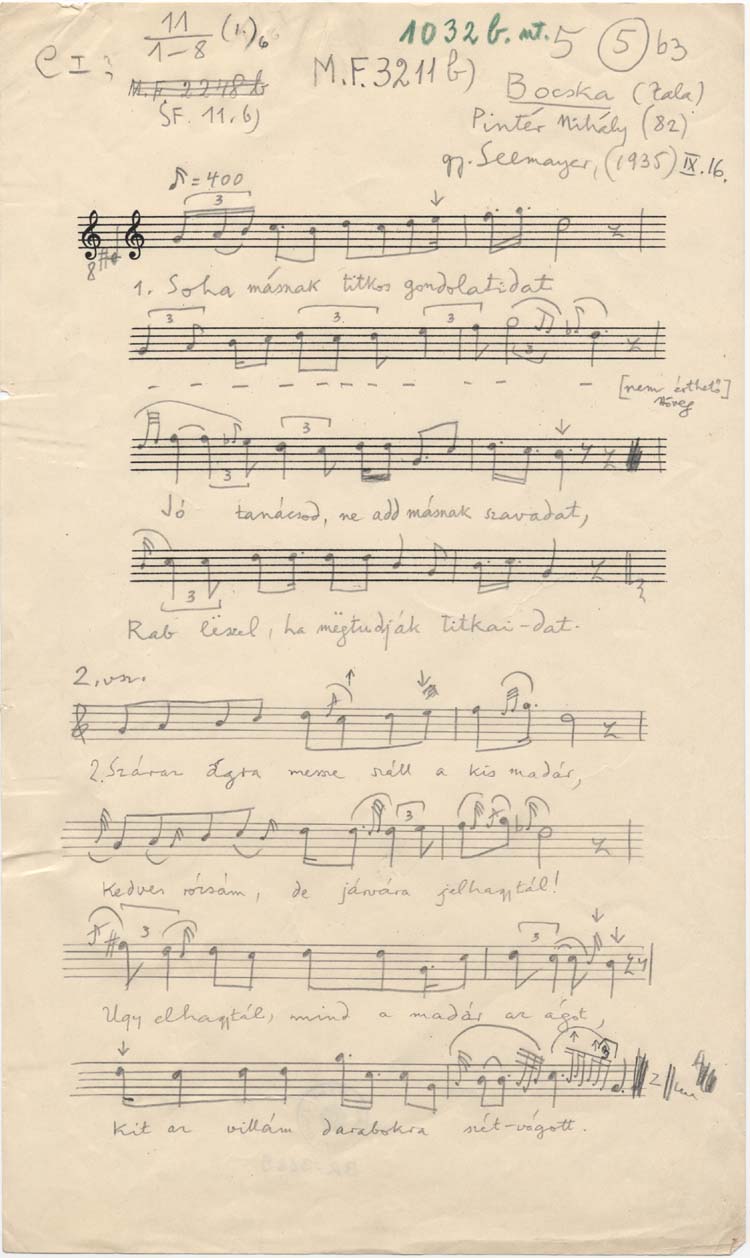 11
1–8
(1.)
C I:
1032 b. mt. 5 (5) b3
M.F. 2248 b
M.F. 3211 b)
(SF. 11. b)
Bocska (Zala)
Pintér Mihály (82)
gy. Seemayer, (1935) IX. 16.
♪ = 400
3
8
1. Soha másnak titkos gondolatidat
3 3 3 3
– – – – – – – – – – – [nem érthető]
szöveg
3 3
Jó tanácsod, ne add másnak szavadat,
3
Rab lëszel, ha mëgtudják titkai-dat.
2. vsz.
2. Száraz ágra messze száll a kis madár,
3
Kedves rózsám, de járvára jelhagytál!
3 3
Ugy elhagytál, mind a madár az ágot,
Kit az villám darabokra szét-vágott.